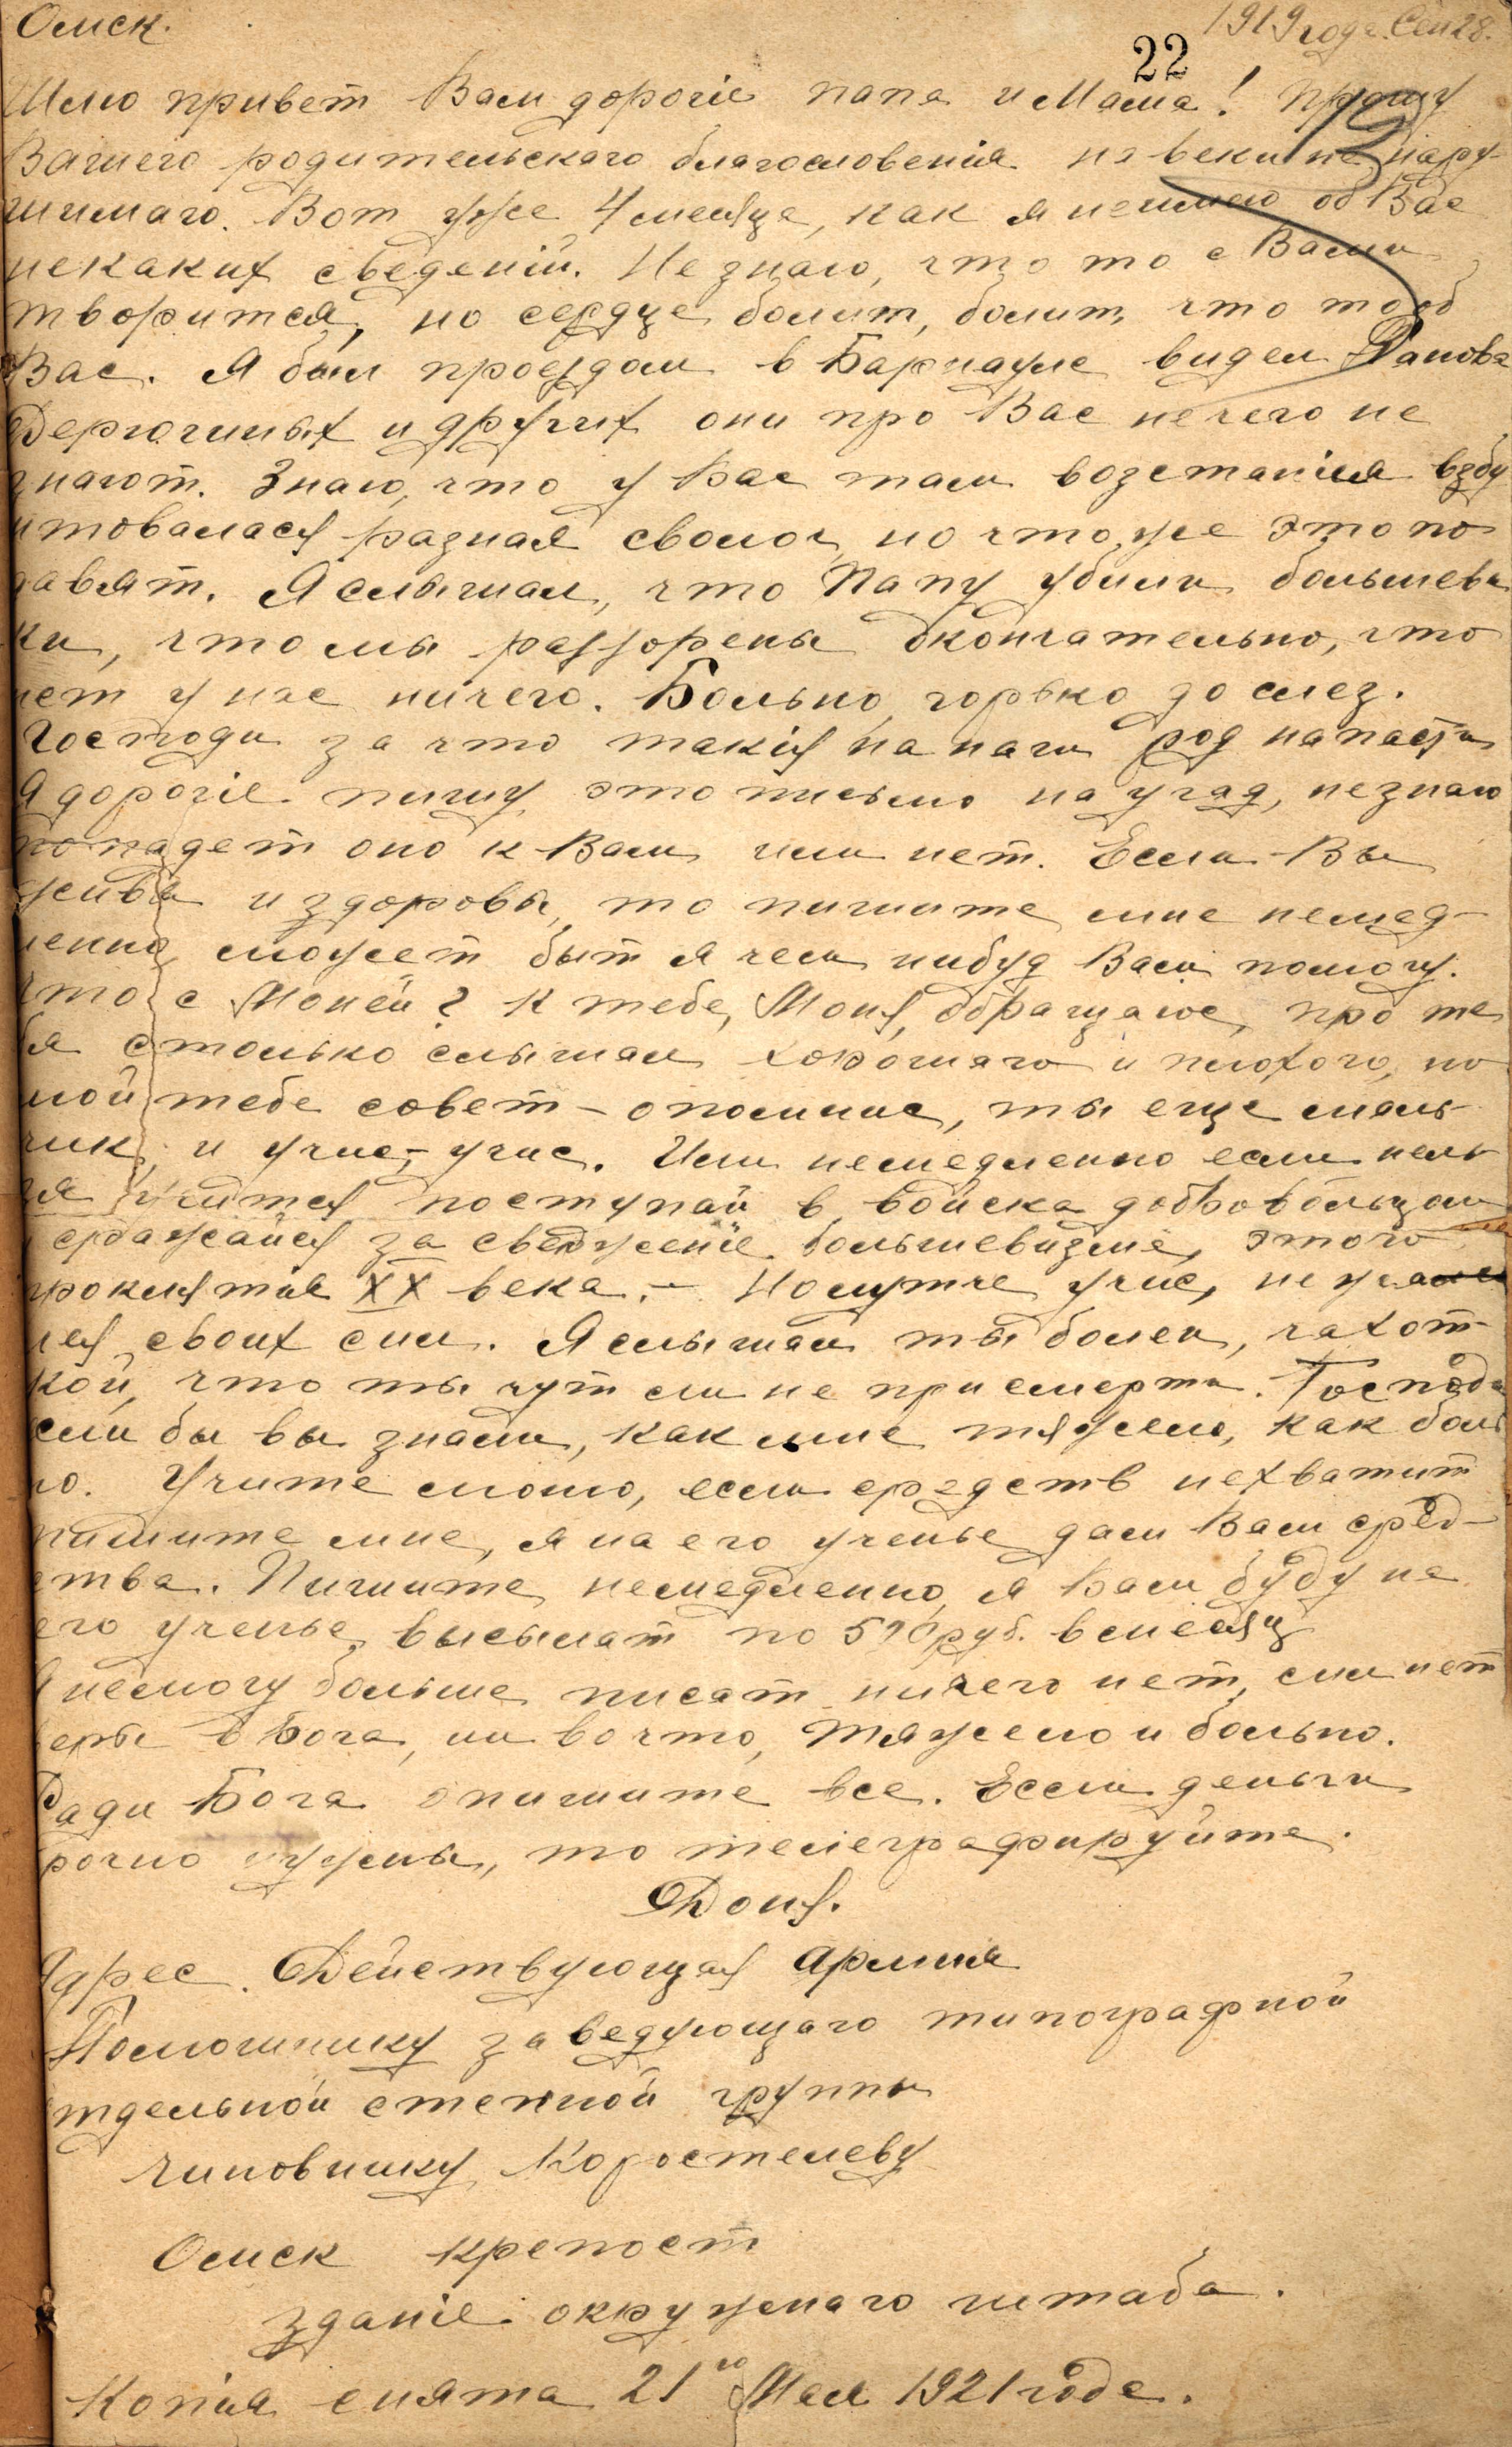 Омск.
1919 года Сен 28.
22
Шлю привет Вам дорогіе папа и Мама! Прошу
Вашего родительскаго благословенія на веки не нару-
шимаго. Вот уже 4 месяца, как я не имею об Вас
некаких сведеній. Не знаю, что то с Вами
творится, но сердце болит, болит что то об
Вас. Я был проездом в Барнауле видел Панова
Дерюгиных и других они про Вас нечего не
знают. Знаю, что у Вас там возстанія взбу
нтовалась разная сволоч, но что же это по
давят. Я слышал, что Папу убили большеви
ки, что мы раззорены окончательно, что
нет у нас ничего. Больно, горько до слез.
Господи за что такія на наш род напасти
Я дорогіе пишу это письмо на угад, не знаю
попадет оно к Вам или нет. Если Вы
живы и здоровы, то пишите мне немед-
ленно, может быт я чем нибуд Вам помогу.
Что с Моней? К тебе, Моня, обращаюс, про те
бя столько слышал хорошаго и плохого, но
мой тебе совет – опомнис, ты еще маль-
чик, и учис, учис. Или немедленно если нель-
зя учится поступай в войска добровольцом
сражайся за свержение большевизме, этого
проклятия XX века. – Но лутче учис, не
своих сил. Я слышал ты болен, чахот-
кой, что ты чут ли не при смерти. Господи
если бы вы знали, как мне тяжело, как боль
но. Учите Моню, если средств нехватит
пишите мне, я на его ученье дам Вам сред-
ства. Пишите немедленно, я Вам буду на
его ученье высылат по 500 руб. в месяц
Я немогу больше писат ничего нет, сил нет
веры в Бога, ни во что, тяжело и больно.
Ради Бога опишите все. Если деньги
срочно нужны, то телеграфируйте.
Доня.
Адрес. Действующая армия
Помошнику заведующаго типографной
отдельной степной группы
чиновнику Коростелеву
Омск крепост
зданіе окружнаго штаба.
Копія снята 21го Мая 1921 года.